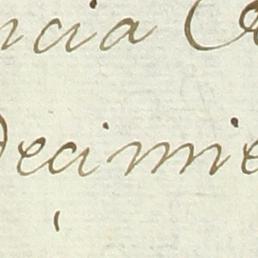 ncia
Decimie